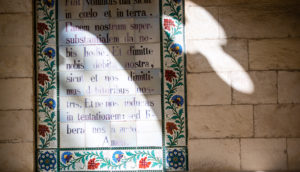 Fiat Voluntas tua sicut
in cœlo et in terra.
Panem nostrum super-
substantialem da no-
bis hodie. Et dimitte
nobis debita nostra,
sicut et nos dimitti-
mus debitoribus nos-
tris. Et ne nos inducas
in tentationem: sed li-
bera nos a malo.
Am